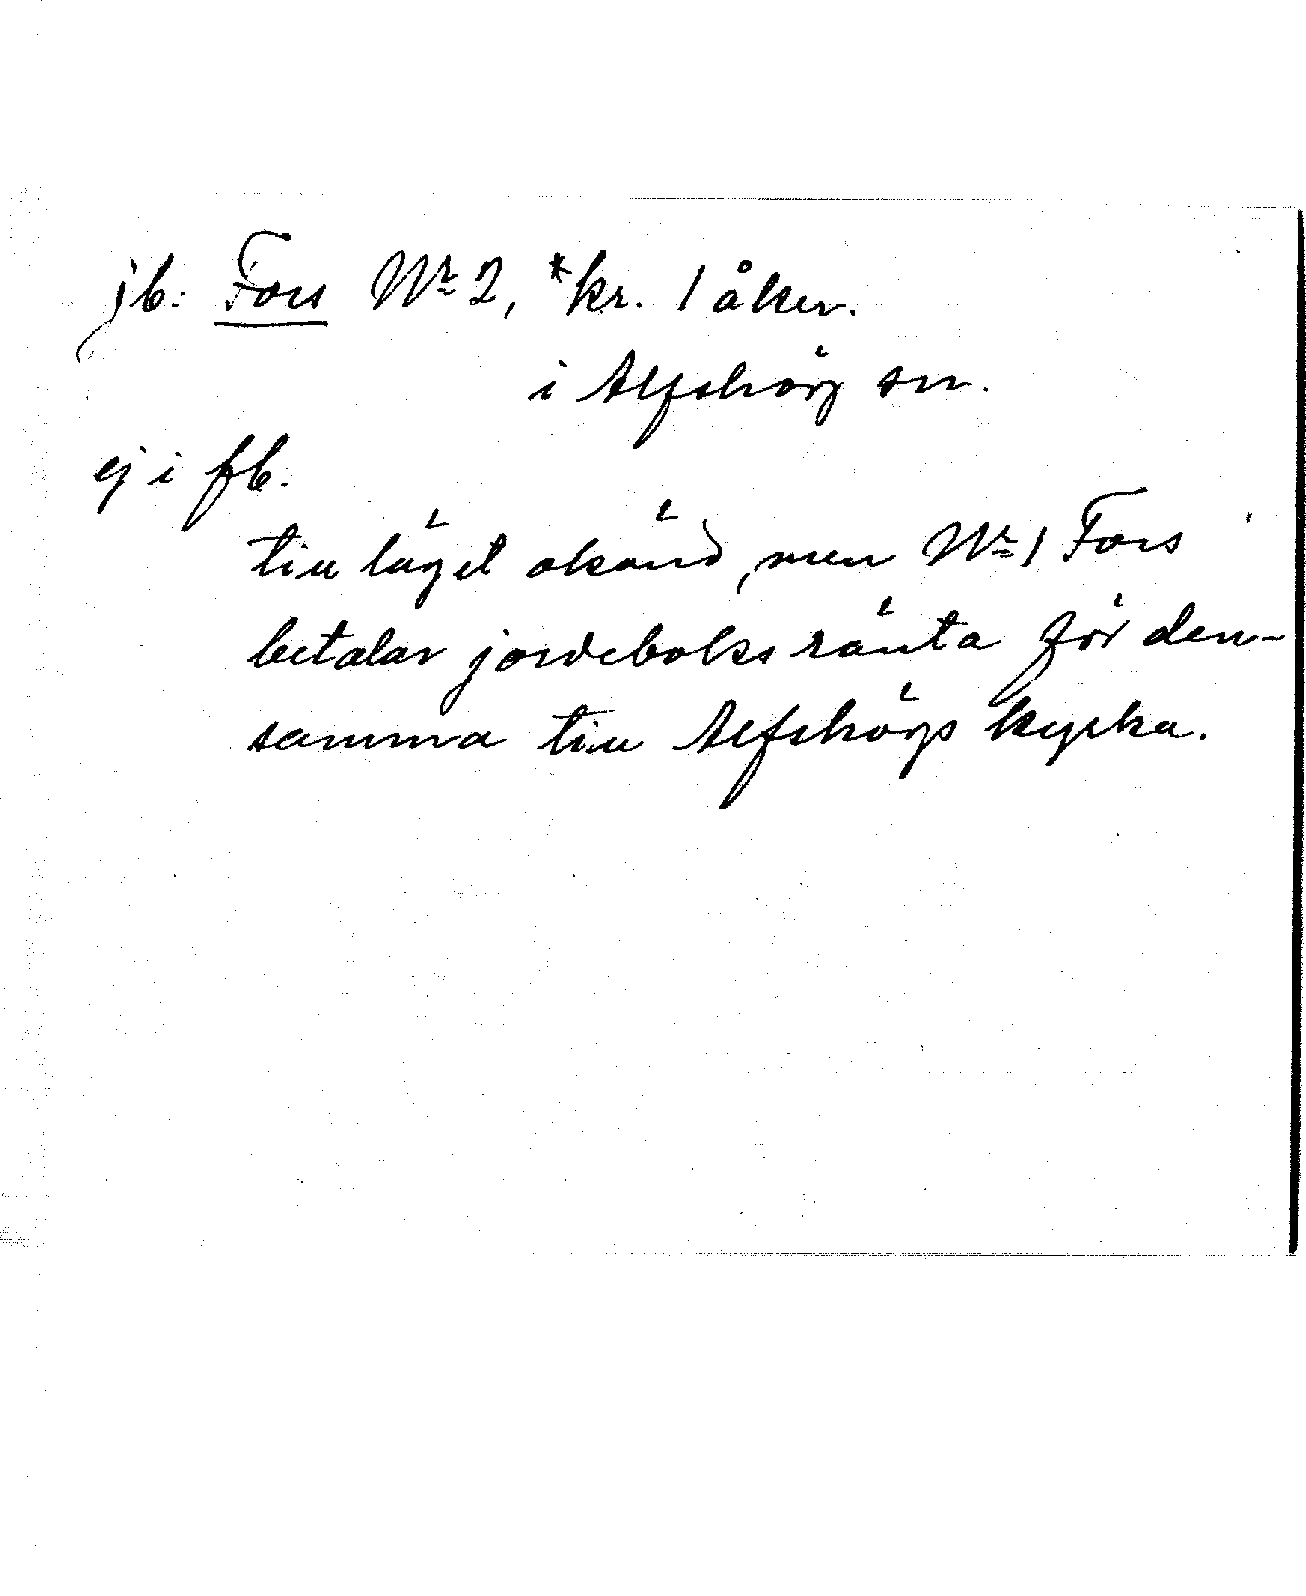 jb. Fors Nr 2, *kr. 1 åker.
i Alfshög sn.
ej i fb.
till läget okänd, men Nr 1 Fors
betalar jordeboks ränta för den-
samma till Alfshögs kyrka.